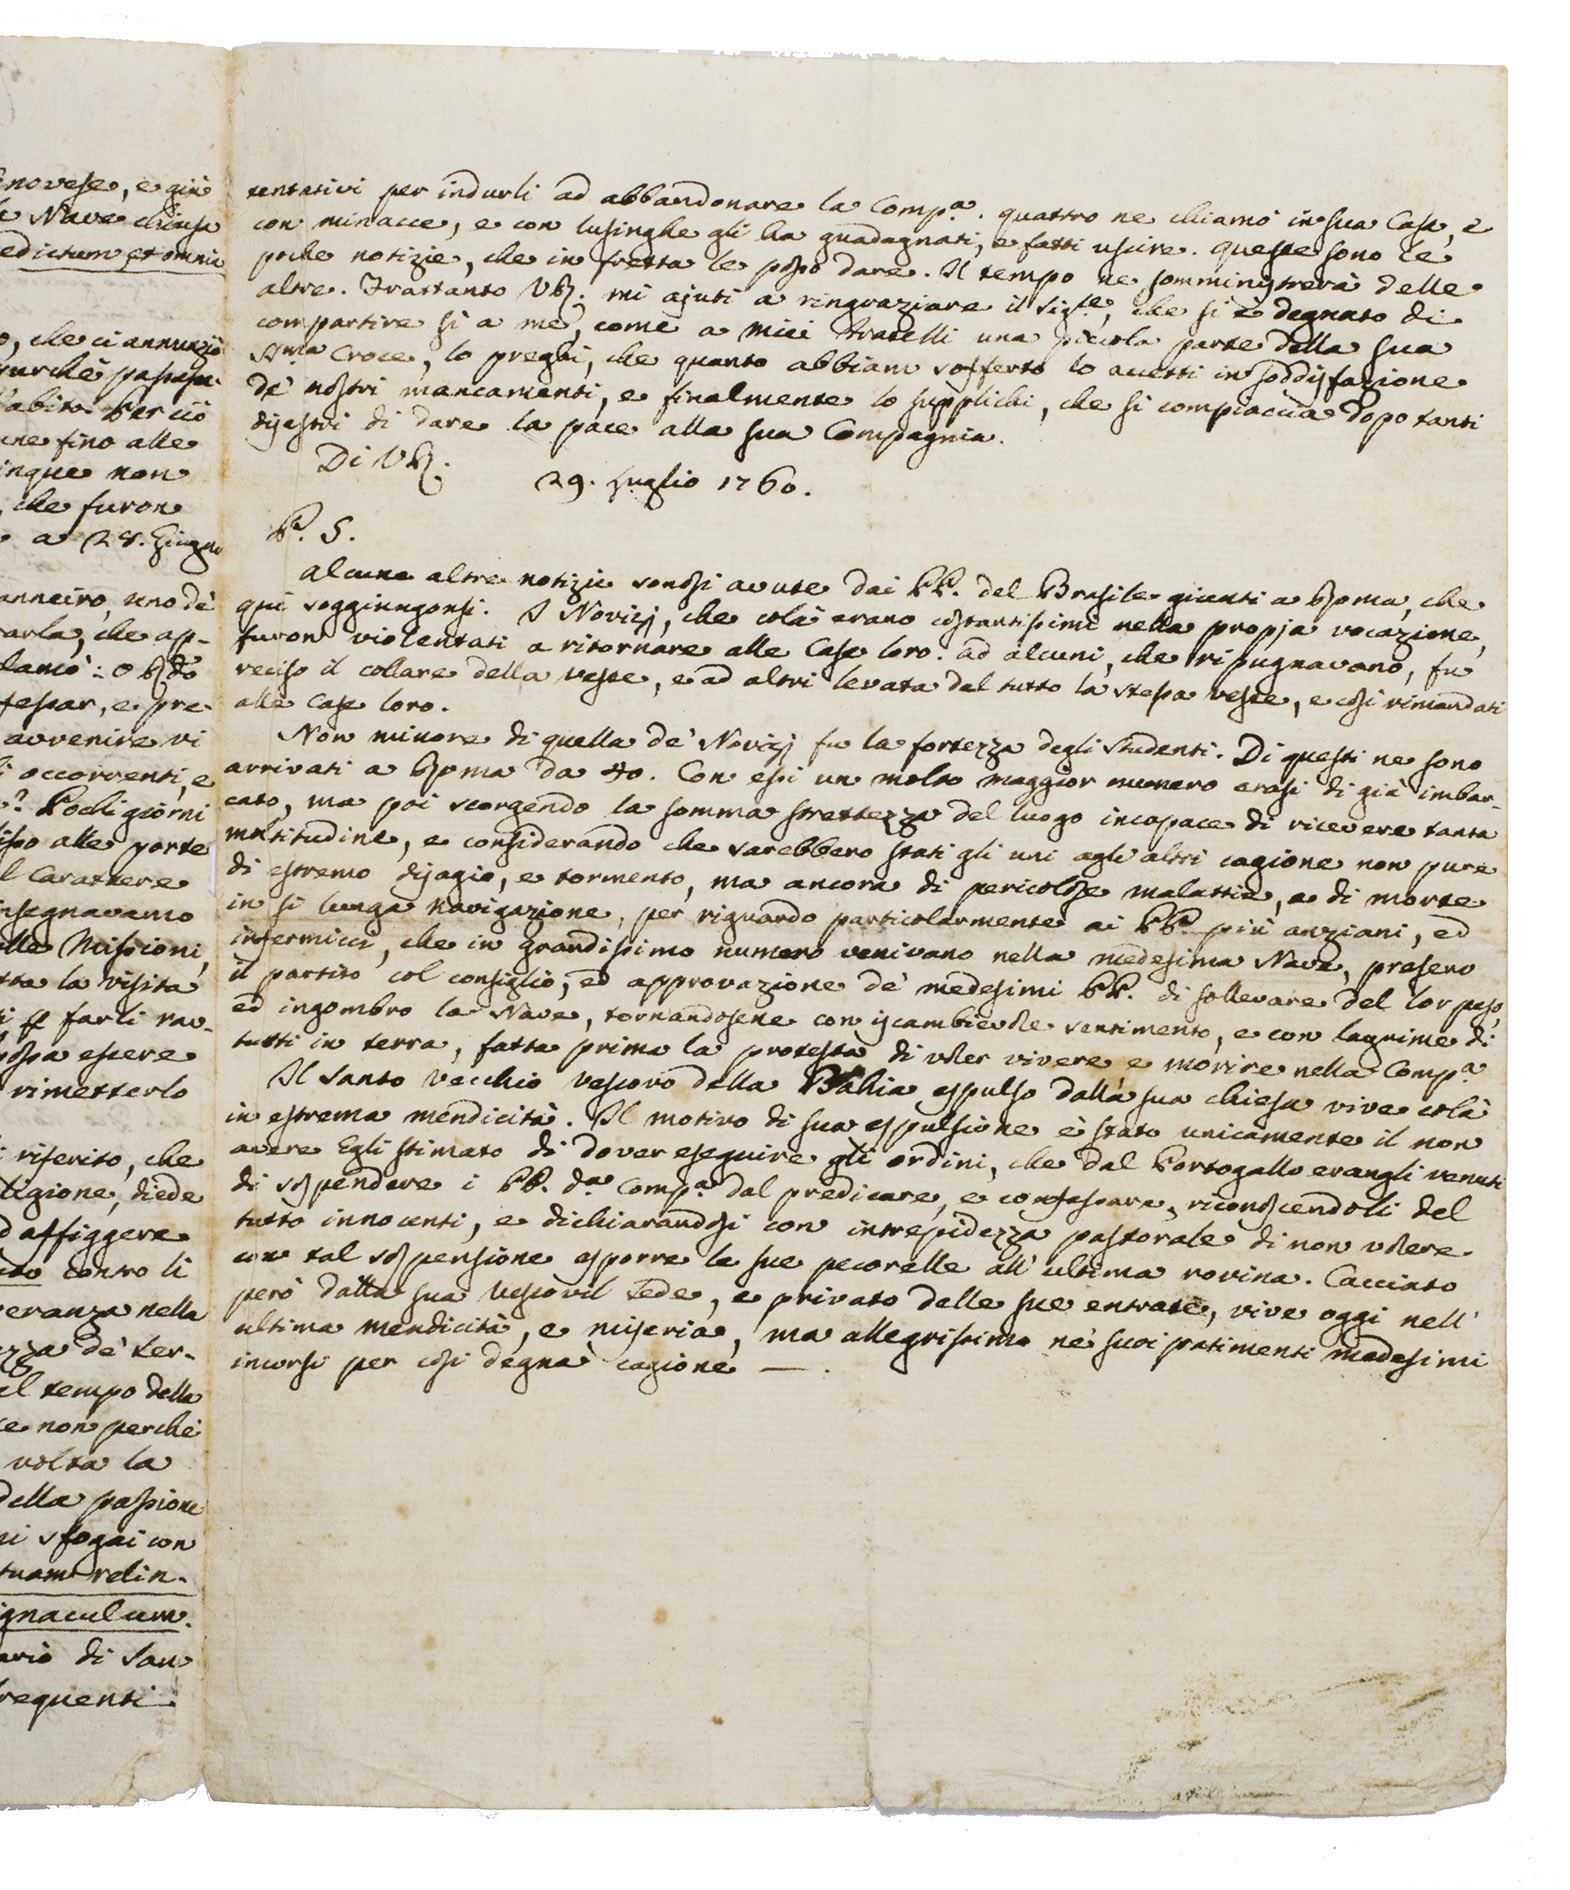 enovese, e già
Nave chiusa
edictum, et omnia
o, che ci annunziò
purchè passasse
l'abito. Per ciò
une fino alle
inque non
, che furon
a 28. Giugno
anneiro, uno de'
parla, che ap-
clamò: O
fessar, e pre-
avvenire vi
occorrenti, e
? Pochi giorni
alle porte
l Carattere
insegnavamo
alle Missioni,
tta la visita
farli rav-
possa essere
rimetterlo
riferito, che
ligione, diede
d affiggere
contro li
eranza nella
ezza de' ter-
el tempo della
ce non perchè
volta la
della passione
mi sfogai con
tuam relin-
ignaculum.
ario di San
frequenti
tentativi per indurli ad abbandonare la Comp.a. quattro ne chiamò in sua Casa, e
con minacce, e con lusinghe gli ha guadagnati, e fatti uscire. queste sono le
poche notizie, che in fretta le posso dare. Il tempo ne somministrerà delle
altre. Frattanto VR. mi ajuti a ringraziare il Sig.re, che si è degnato di
compartire sì a me, come a miei Fratelli una piccola parte della sua
SS.ma Croce, lo preghi, che quanto abbiam sofferto lo accetti in soddisfazione
de' nostri mancamenti, e finalmente lo supplichi, che si compiaccia dopo tanti
disastri di dare la pace alla sua Compagnia.
Di VR.
29. Luglio 1760.
P. S.
Alcune altre notizie sonosi avute dai PP. del Brasile giunti a Roma, che
qui soggiungonsi. I Novizj, che colà erano costantissimi nella propja vocazione,
furon violentati a ritornare alle Case loro. ad alcuni, che ripugnavano, fu
reciso il collare della veste, e ad altri levata del tutto la stessa veste, e così rimandati
alle Case loro.
Non minore di quella de' Novizj fu la fortezza degli Studenti. Di questi ne sono
arrivati a Roma da 40. Con essi un molto maggior numero erasi di già imbar-
cato, ma poi scorgendo la somma strettezza del luogo incapace di ricevere tanta
moltitudine, e considerando che sarebbero stati gli uni agli altri cagione non pure
di estremo disagio, e tormento, ma ancora di pericolose malattie, e di morte
in sì lunga navigazione, per riguardo particolarmente ai PP. più anziani, ed
infermicci, che in grandissimo numero venivano nella medesima Nave, presero
il partito col consiglio, ed approvazione de' medesimi PP. di sollevare del lor peso,
ed ingombro la Nave, tornandosene con iscambievole sentimento, e con lagrime di
tutti in terra, fatta prima la protesta di voler vivere e morire nella Comp.a
Il Santo vecchio vescovo della Bahia espulso dalla sua chiesa vive colà
in estrema mendicità. Il motivo di sua espulsione è stato unicamente il non
avere Egli stimato di dover eseguire gli ordini, che dal Portogallo erangli venuti
di sospendere i PP. d.a Comp.a dal predicare, e confessare, riconoscendoli del
tutto innocenti, e dichiarandosi con intrepidezza pastorale di non volere
con tal sospensione esporre le sue pecorelle all' ultima rovina. Cacciato
però dalla sua vescovil Sede, e privato delle sue entrate, vive oggi nell'
ultima mendicità, e miseria, ma allegrissimo ne' suoi patimenti medesimi
incorsi per così degna cagione —.